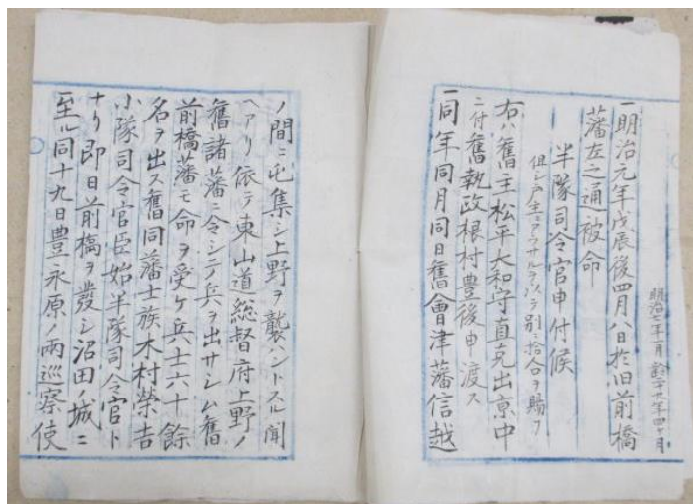 明治七年一月 齢二十六年四ヶ月
一明治元年戊辰後四月八日於旧前橋
藩左之通被命
半隊司令官申付候
但シ戸主ニアラサルヲ以テ別ニ拾合ヲ賜フ
右ハ舊主松平大和守直克出京中
ニ付舊執政根村豊後申渡ス
一同年同月同日舊會津藩信越
ノ間ニ屯集シ上野ヲ襲ハントスル聞
ヘアリ依テ東山道総督府上野ノ
舊諸藩ニ令シテ兵ヲ出サシム舊
前橋藩モ命ヲ受ケ兵士六十餘
名ヲ出ス舊同藩士族木村榮吉
小隊司令官臣始半隊司令官ト
ナリ即日前橋ヲ發シ沼田ノ城ニ
至ル同十九日豊永原ノ両巡察使